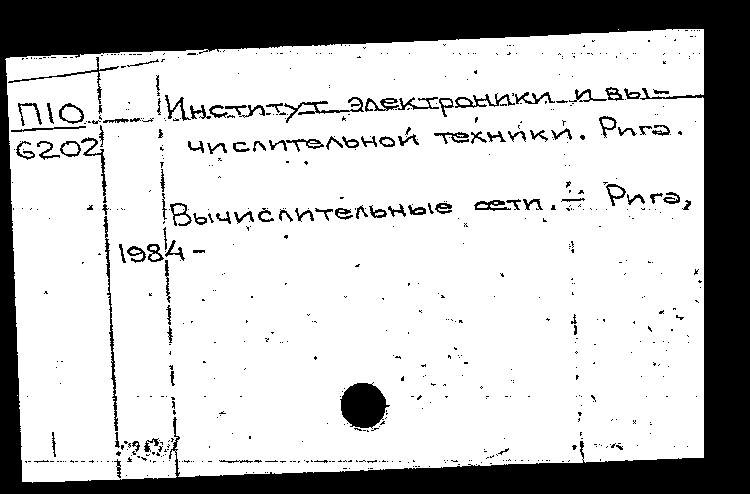 П10
6202
Институт электроники и вы-
числительной техники. Рига.
Вычислительные сети. — Рига,
1984 -